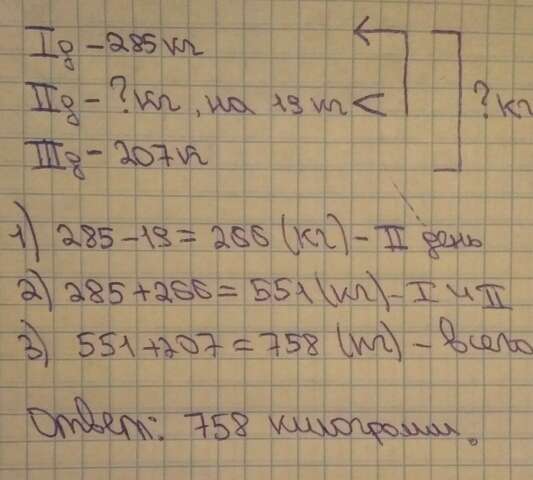 Iд - 285 кг
IIд - ? кг, на 19 кг < ? кг
IIIд - 207 к
1) 285 - 19 = 266 (кг) - II день
2) 285 + 266 = 551 (кг) - I и II
3) 551 + 207 = 758 (кг) - всего
Ответ: 758 килограмм.